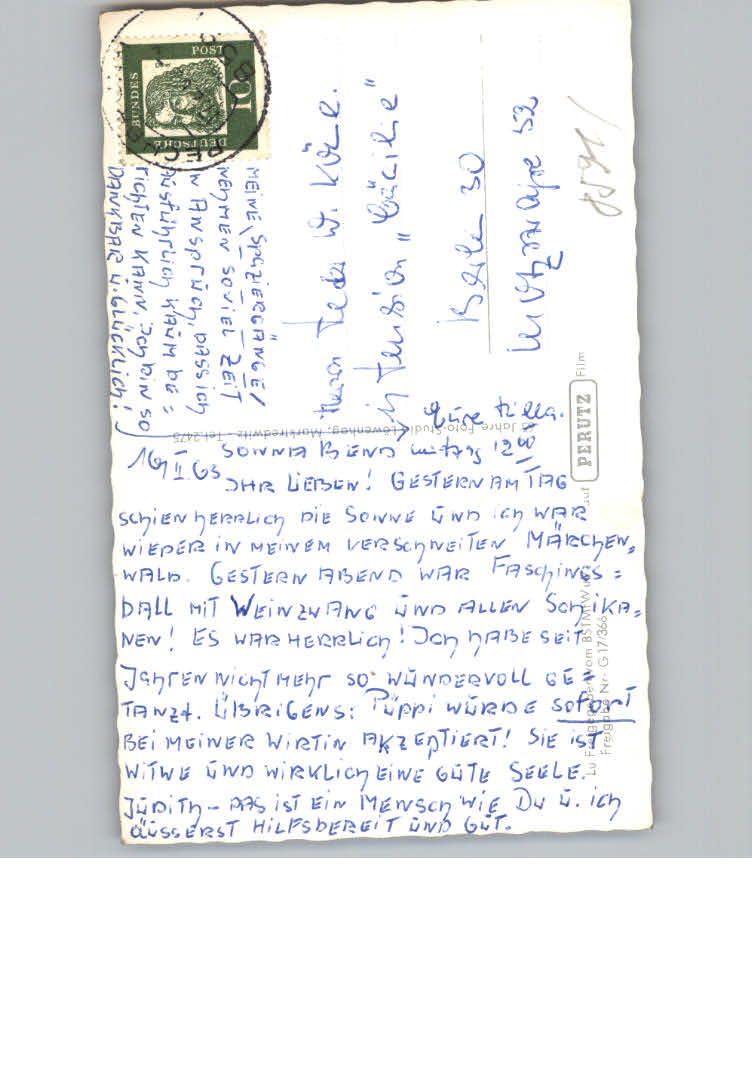 16/II.63
SONNABEND mittag 12⁰⁰
IHR LIEBEN! GESTERN AM TAG
SCHIEN HERRLICH DIE SONNE UND ICH WAR
WIEDER IN MEINEM VERSCHNEITEN MÄRCHEN=
WALD. GESTERN ABEND WAR FASCHINGS=
BALL MIT WEINZWANG UND ALLEN SCHIKA=
NEN! ES WAR HERRLICH! ICH HABE SEIT
JAHREN NICHT MEHR SO WUNDERVOLL GE=
TANZT. ÜBRIGENS: PUPPI WÜRDE SOFORT
BEI MEINER WIRTIN AKZEPTIERT! SIE IST
WITWE UND WIRKLICH EINE GUTE SEELE.
JUDITH – DAS IST EIN MENSCH WIE DU U. ICH
ÄUSSERST HILFSBEREIT UND GUT.
MEINE SPAZIERGÄNGE
NEHMEN SOVIEL ZEIT
IN ANSPRUCH, DASS ICH
AUSFÜHRLICH KAUM BE=
RICHTEN KANN. ICH BIN SO
DANKBAR U. GLÜCKLICH!
Eure
Herrn
W.
Pension „Cäcilie"
Berlin 30
52
DEUTSCHE
BUNDES
POST
10
Jahre Foto-Studio Löwenhag, Marktredwitz - Tel. 2475
auf PERUTZ Film
Freigegeben vom BSTMWuV
Freigabe Nr. G 17/366